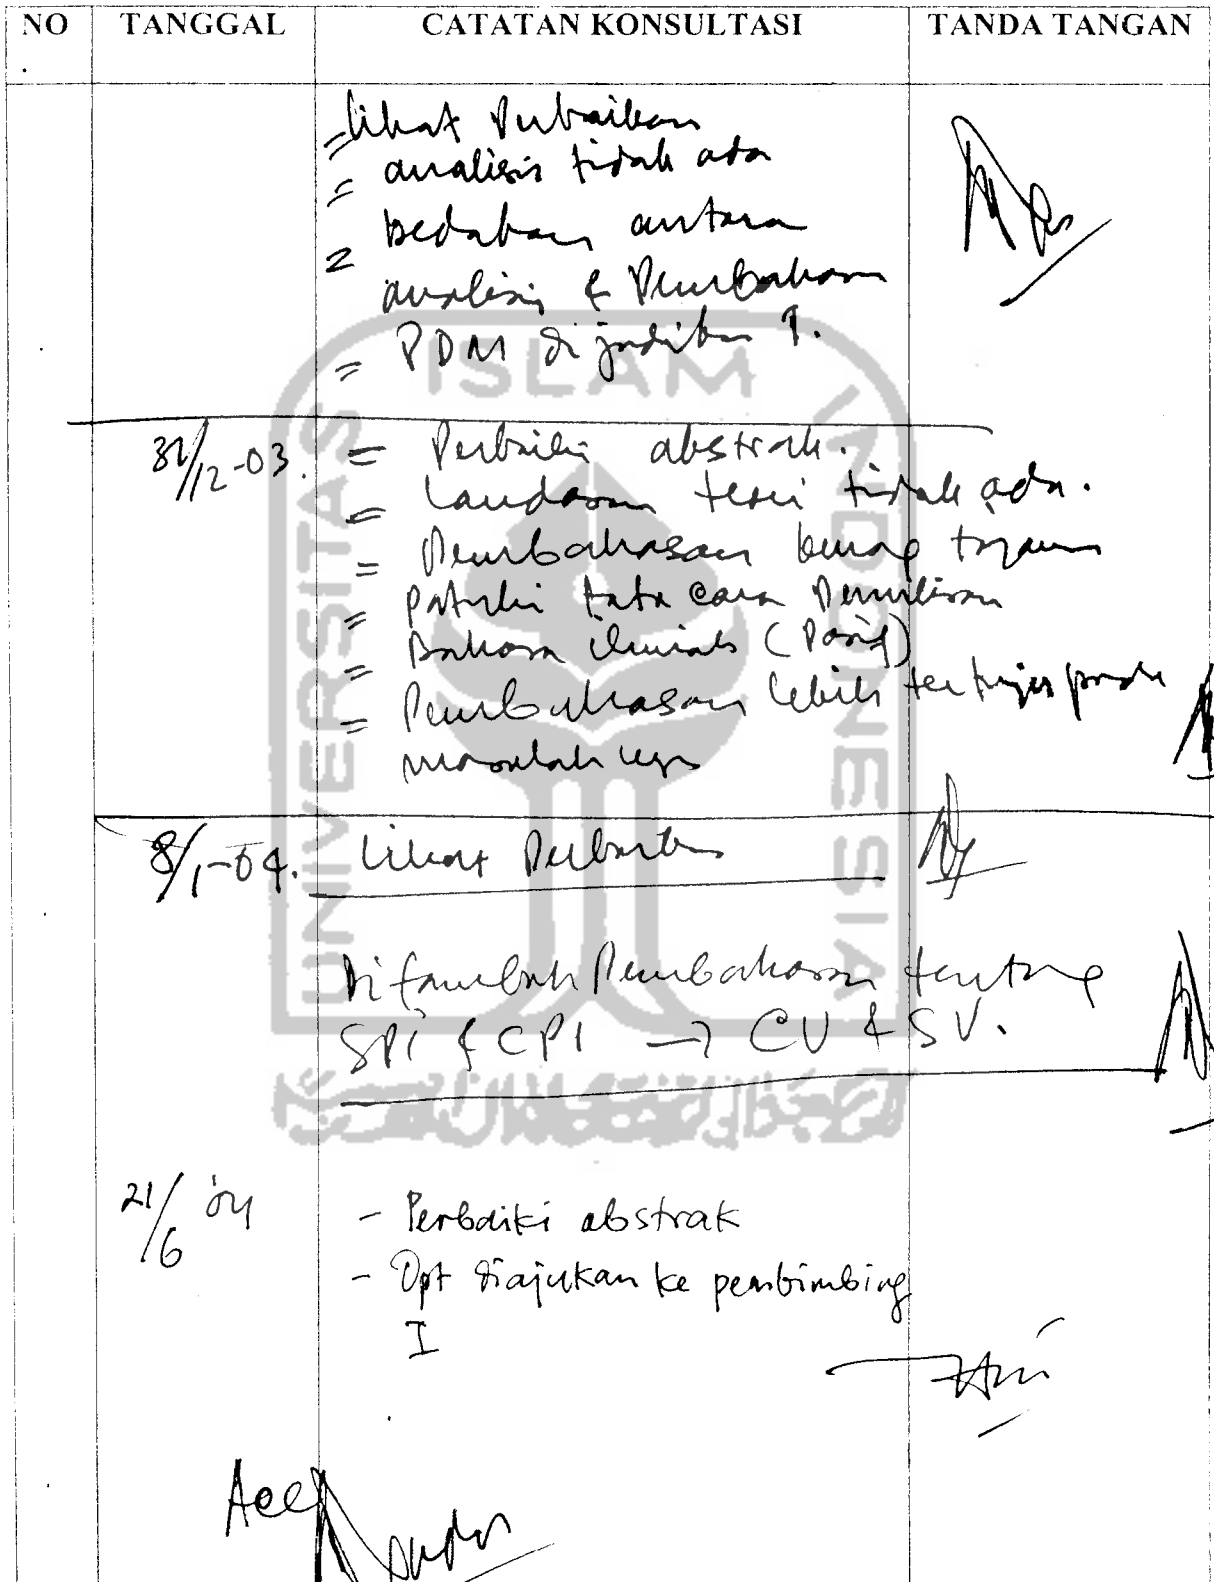 NO. TANGGAL CATATAN KONSULTASI TANDA TANGAN
= lihat Perbaikan
= analisis tidak ada
= bedakan antara
analisis & Pembahasan
= PDM dijadikan 1.
31/12-03. = Perbaiki abstrak.
= Landasan teori tidak ada.
= Pembahasan kurang tajam
= patuhi tata cara Penulisan
= Bahasa ilmiah (Pasif)
= Pembahasan lebih tertuju pada
masalah
8/1-04. Lihat Perbaikan
Ditambah Pembahasan tentang
SPI & CPI → CV & SV.
21/6 '04 - Perbaiki abstrak
- Dpt diajukan ke pembimbing
I
Acc
UNIVERSITAS ISLAM INDONESIA